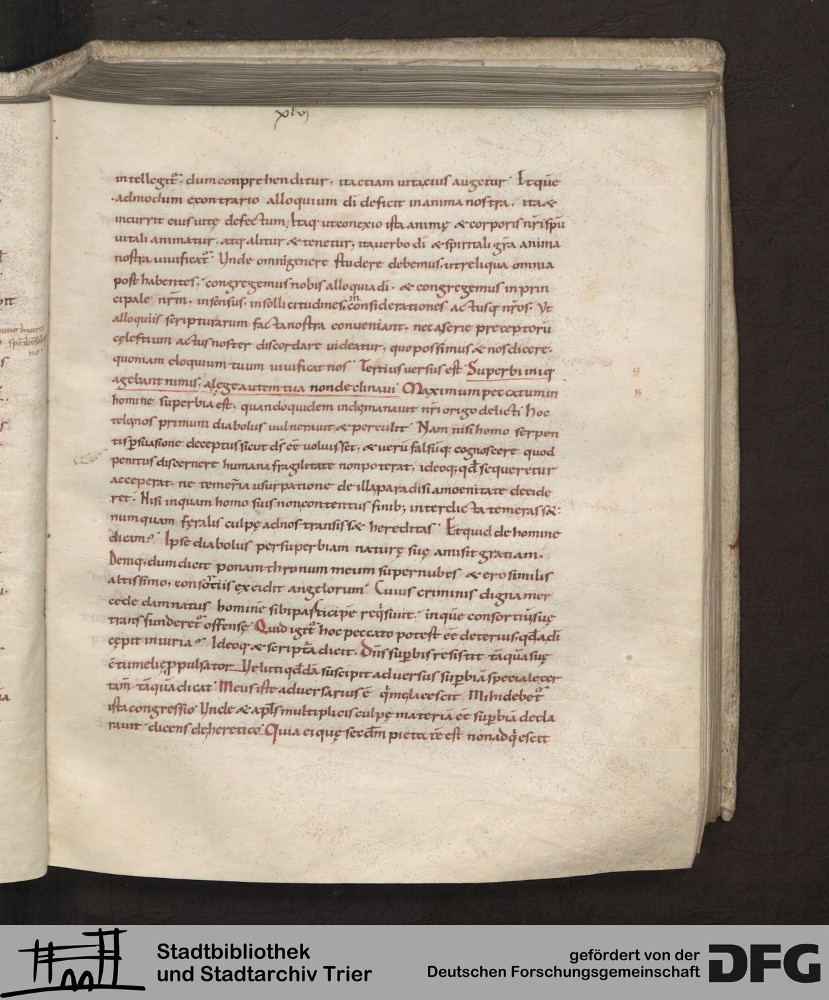 xlvi
intellegit᷑. dum conprehenditur. ita etiam uita eius augetur. Et que
admodum e contrario alloquium di deficit in anima nostra. ita &
incurrit eius uitę defectum; Itaq ut conexio ista animę & corporis nr̄i spū
uitali animatur. atq alitur & tenetur, ita uerbo di & spiritali gr̄a anima
nostra uiuificat᷑. Unde omni genere studere debemus. ut reliqua omnia
post habentes, congregemus nobis alloquia di. & congregemus in prin
cipale nr̄m. in sensus. in sollicitudines, in considerationes actusq nr̄os. Ut
alloquiis scripturarum facta nostra conueniant. nec a serie preceptorū
cęlestium actus noster discordare uideatur, quo possimus & nos dicere.
quoniam eloquium tuum uiuificat nos. Tertius uersus est Superbi iniq
agebant nimis, a lege autem tua non declinaui. Maximum peccatum in
homine superbia est. quandoquidem inde manauit nr̄i origo delicti. Hoc
telo nos primum diabolus uulnerauit & perculit. Nam nisi homo serpen
tis p̄suasione deceptus sicut d̄s ēe uoluisset, & uerū falsūq; cognoscere quod
penitus discernere humana fragilitate non poterat, ideoq; qd̄ sequeretur
acceperat. ne temeraria usurpatione de illa paradisi amoenitate decide
ret. Nisi inquam homo suis non contentus finib; interdicta temerass&
numquam feralis culpę ad nos transiss& hereditas. Et quid de homine
dicam? Ipse diabolus per superbiam naturę suę amisit gratiam.
Deniq; dum dicit ponam thronum meum super nubes & ero similis
altissimo. consortiis excidit angelorum. Cuius criminis digna mer
cede damnatus homine sibi participē reqsiuit. in quē consortiū suę
transfunderet᷑ offensę. Quid igit᷑ hoc peccato potest ēe deterius. qd̄ a di
cępit iniuria? Ideoq & scriptura dicit. Dn̄s sup̄bis resistit tāquā suę
cōtumelię p pulsator. Ueluti qd̄dā suscipit aduersus sup̄biā speciale cer
tam̄ tāquā dicat. Meus iste aduersarius ē q̄ me lacescit. Mihi debet᷑
ista congressio. Unde & apl̄s multiplicis culpę materiā ēe sup̄biā decla
rauit dicens de heretico. Quia ei quę secd̄m pietatē est non adq̄escit
Stadtbibliothek
und Stadtarchiv Trier
gefördert von der
Deutschen Forschungsgemeinschaft
DFG